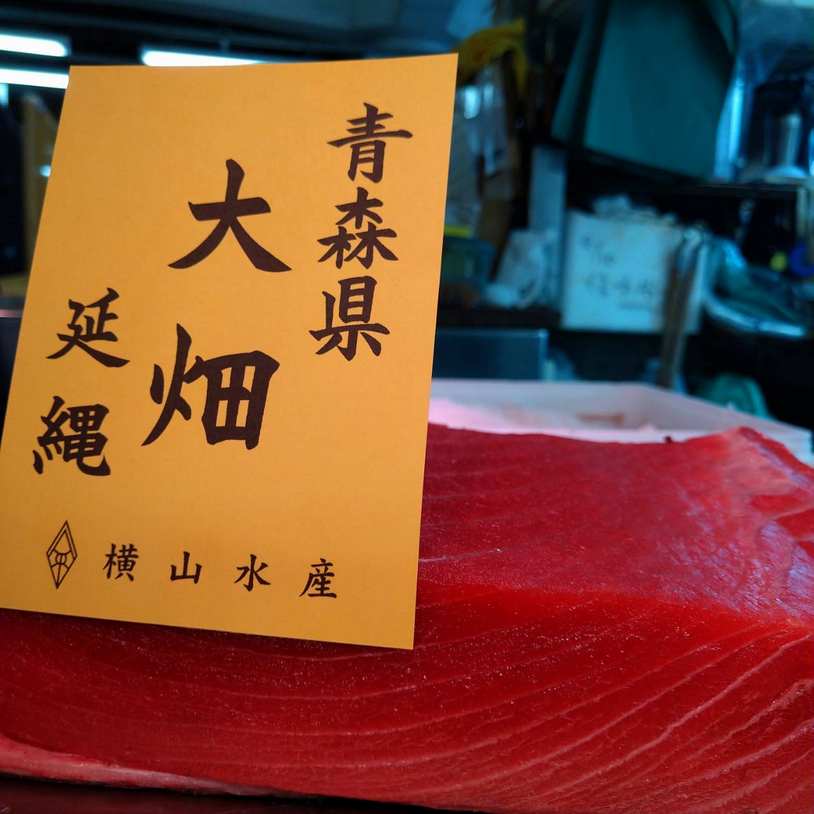 青森県
大畑
延縄
横山水産